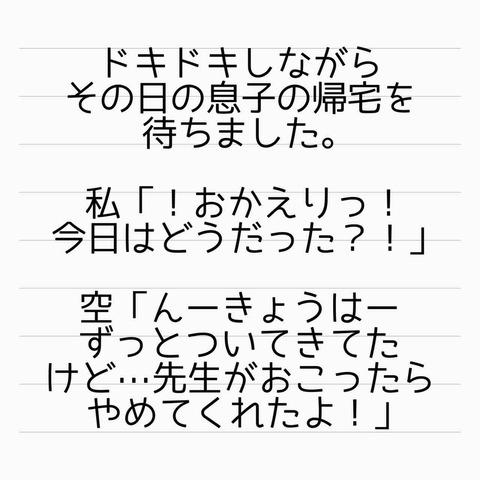 ドキドキしながら
その日の息子の帰宅を
待ちました。
私「！おかえりっ！
今日はどうだった？！」
空「んーきょうはー
ずっとついてきてた
けど…先生がおこったら
やめてくれたよ！」